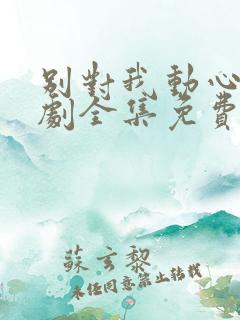 別對我動心
劇全集免費
蘇玄黎
未經同意禁止轉載